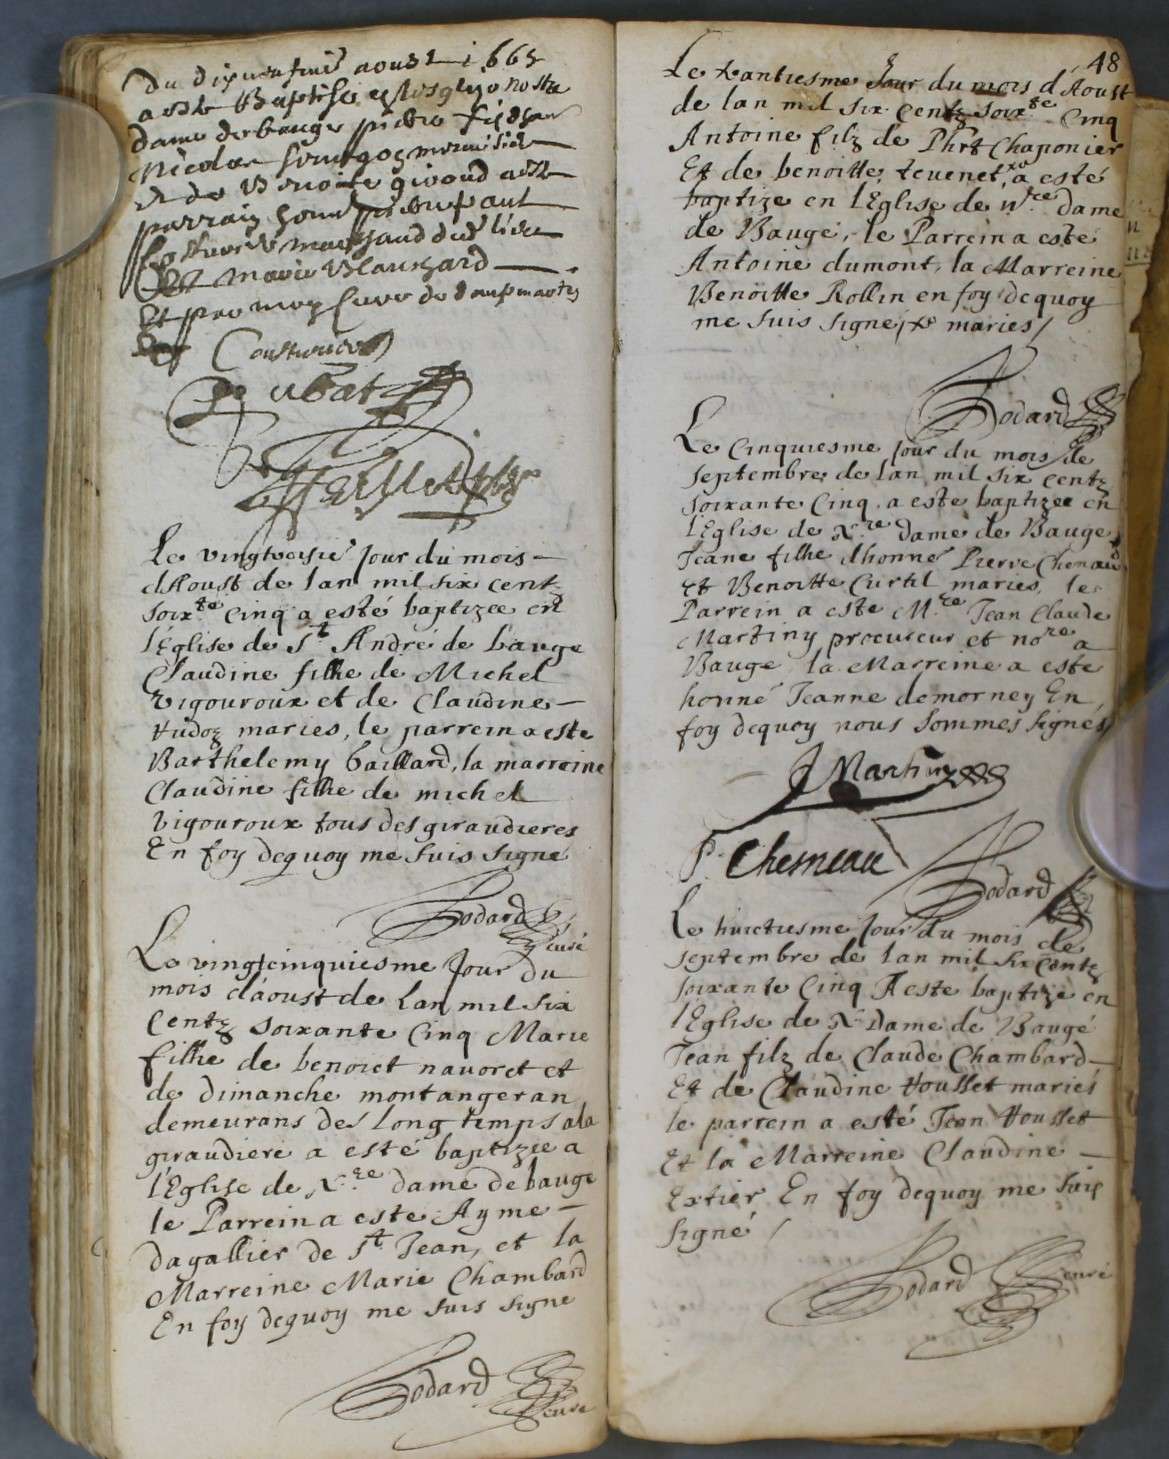 Du dixneufvie aoust 1665
a esté Baptisé en leglize nostre
dame de bauge pierre filz de
Nicolas
et de Benoite giroud a esté
parrain pierre paul
Cousturier marchand dud lieu
Et marie Blanchard
Et par moy Curé de
Cousturier
Le vingtroisie jour du mois
d'Aoust de lan mil six centz
soixte cinq a esté baptizee en
l'Eglise de St André de bauge
Claudine filhe de Michel
vigouroux et de Claudine
hudoz maries, le parrein a este
Barthelemy baillard, la marreine
Claudine filhe de michel
vigouroux tous des giraudieres
En foy dequoy me suis signé
Godard curé
Le vingtcinquiesme Jour du
mois d'aoust de Lan mil six
centz soixante Cinq Marie
filhe de benoict navoret et
de dimanche montangeran
demeurans des Long temps a la
giraudiere a esté baptizee a
l'Eglise de Nre dame de bauge
le Parrein a este Ayme
dagallier de St Jean, et la
Marreine Marie Chambard
En foy dequoy me suis signe
Godard curé
48
Le trantiesme Jour du mois d'Aoust
de lan mil six centz soixte Cinq
Antoine filz de Phrt Chaponier
Et de benoitte tevenet, x a esté
baptize en l'Eglise de Nre dame
de Baugé, le Parrein a esté
Antoine dumont, la Marreine
Benoitte Rollin en foy dequoy
me suis signé / x maries /
Godard
Le Cinquiesme jour du mois de
septembre de lan mil six centz
soixante Cinq a este baptizee en
l'Eglise de Nre dame de Bauge
Jeane filhe d'honne Pierre Chenaud
et Benoitte Curtil maries, le
Parrein a este Mre Jean Claude
Martiny procureur et nore a
Bauge la Marreine a este
honné Jeanne demorney En
foy dequoy nous sommes signés
J Martiny
P. Chesneau
Godard
Le huictiesme Jour du mois de
septembre de lan mil six centz
soixante Cinq A este baptizé en
l'Eglise de N Dame de Baugé
Jean filz de Claude Chambard
Et de Claudine Housset mariés
le parrein a esté Jean Housset
Et la Marreine Claudine
Extier En foy dequoy me suis
signé /
Godard curé